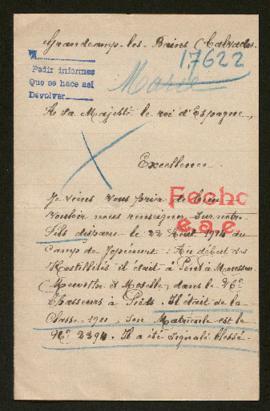 Grandcamp-les-Bains (Calvados
17622
Pedir informes
Que se hace asi
Devolver
Maroc
A Sa Majesté le roi d'Espagne,
Excellence
Je viens vous prier de bien
Fecho
vouloir nous renseigner sur notre
e.a.e.
fils disparu le 22 Août 1914 au
Au début des
hostilités il était à
Meurthe et Moselle, dans le
Chasseurs à Pieds. Il était de la
Classe 1911, Son Matricule est le
N° 2394. Il a été signalé blessé